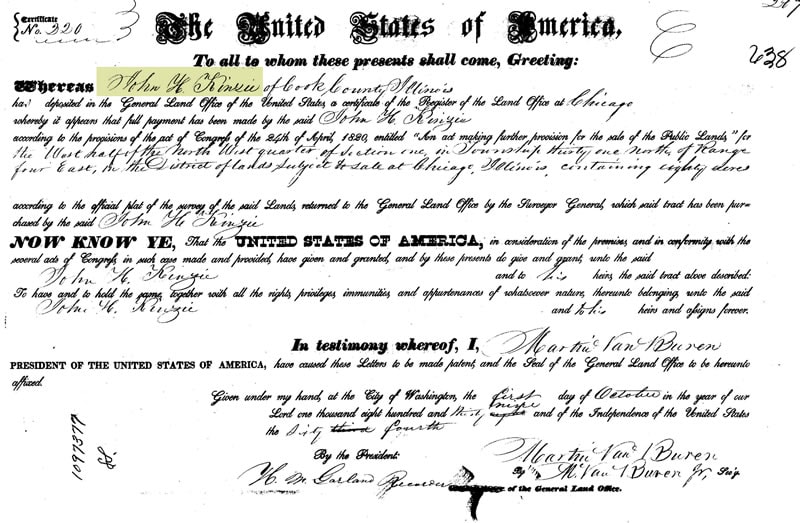 Certificate
No. 320
The United States of America,
638
To all to whom these presents shall come, Greeting:
Whereas John H. Kinzie of Cook County Illinois
has deposited in the General Land Office of the United States, a certificate of the Register of the Land Office at Chicago
whereby it appears that full payment has been made by the said John H. Kinzie
according to the provisions of the act of Congress of the 24th of April, 1820, entitled "An act making further provision for the sale of the Public Lands," for
the West half of the North West quarter of Section one, in Township thirty one North, of Range
four East, in the District of lands subject to sale at Chicago, Illinois, containing eighty acres
according to the official plat of the survey of the said Lands, returned to the General Land Office by the Surveyor General, which said tract has been pur-
chased by the said John H. Kinzie
NOW KNOW YE, That the UNITED STATES OF AMERICA, in consideration of the premises, and in conformity with the
several acts of Congress, in such case made and provided, have given and granted, and by these presents do give and grant, unto the said
John H. Kinzie and to his heirs, the said tract above described:
To have and to hold the same, together with all the rights, privileges, immunities, and appurtenances of whatsoever nature, thereunto belonging, unto the said
John H. Kinzie and to his heirs and assigns forever.
In testimony whereof, I, Martin Van Buren
PRESIDENT OF THE UNITED STATES OF AMERICA, have caused these Letters to be made patent, and the Seal of the General Land Office to be hereunto
affixed.
Given under my hand, at the City of Washington, the first day of October in the year of our
Lord one thousand eight hundred and thirty eight nine and of the Independence of the United States
the Sixty third fourth
By the President: Martin Van Buren
By M. Van Buren Jr, Sec'y.
H. M. Garland Recorder of the General Land Office.